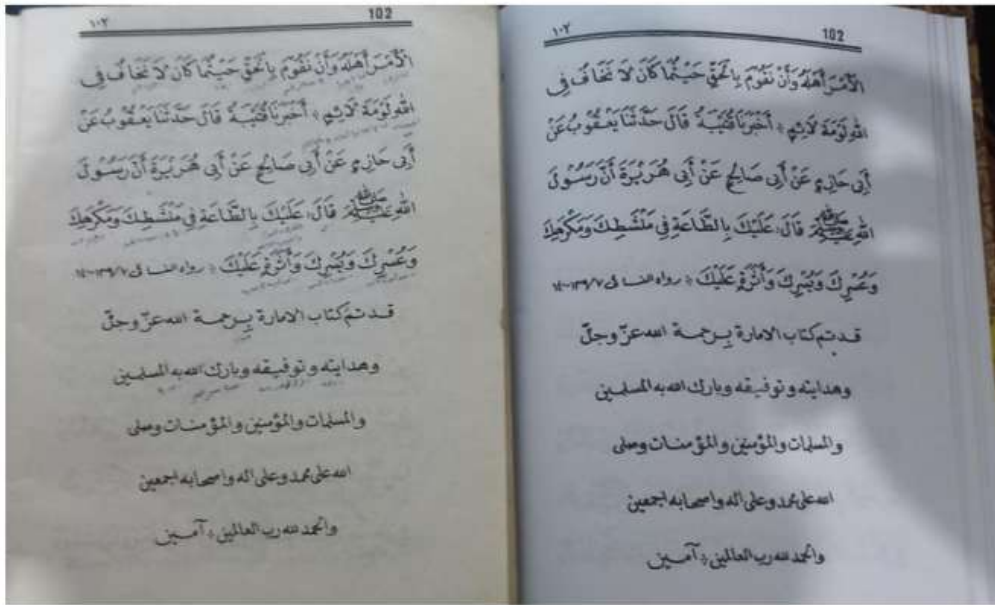 ١٠٢ 102
الْأَمْرَ أَهْلَهُ وَأَنْ نَقُوْمَ بِالْحَقِّ حَيْثُمَا كَانَ لَا نَخَافُ فِى
اللهِ لَوْمَةَ لَائِمٍ ۞ أَخْبَرَنَا قُتَيْبَةُ قَالَ حَدَّثَنَا يَعْقُوْبُ عَنْ
أَبِى حَازِمٍ عَنْ أَبِى صَالِحٍ عَنْ أَبِى هُرَيْرَةَ أَنَّ رَسُوْلَ
اللهِ ﷺ قَالَ: عَلَيْكَ بِالطَّاعَةِ فِى مَنْشَطِكَ وَمَكْرَهِكَ
وَعُسْرِكَ وَيُسْرِكَ وَأَثَرَةٍ عَلَيْكَ ۞ رواه النسائى ١٣٩/٧-١٤٠
قد تم كتاب الامارة بِرحمة الله عزّ وجلّ
وهدايته وتوفيقه وبارك الله به المسلمين
والمسلمات والمؤمنين والمؤمنات وصلى
الله على محمد وعلى اله واصحابه اجمعين
والحمد لله رب العالمين ۞ آمين
١٠٢ 102
الْأَمْرَ أَهْلَهُ وَأَنْ نَقُوْمَ بِالْحَقِّ حَيْثُمَا كَانَ لَا نَخَافُ فِى
اللهِ لَوْمَةَ لَائِمٍ ۞ أَخْبَرَنَا قُتَيْبَةُ قَالَ حَدَّثَنَا يَعْقُوْبُ عَنْ
أَبِى حَازِمٍ عَنْ أَبِى صَالِحٍ عَنْ أَبِى هُرَيْرَةَ أَنَّ رَسُوْلَ
اللهِ ﷺ قَالَ: عَلَيْكَ بِالطَّاعَةِ فِى مَنْشَطِكَ وَمَكْرَهِكَ
وَعُسْرِكَ وَيُسْرِكَ وَأَثَرَةٍ عَلَيْكَ ۞ رواه النسائى ١٣٩/٧-١٤٠
قد تم كتاب الامارة بِرحمة الله عزّ وجلّ
وهدايته وتوفيقه وبارك الله به المسلمين
والمسلمات والمؤمنين والمؤمنات وصلى
الله على محمد وعلى اله واصحابه اجمعين
والحمد لله رب العالمين ۞ آمين